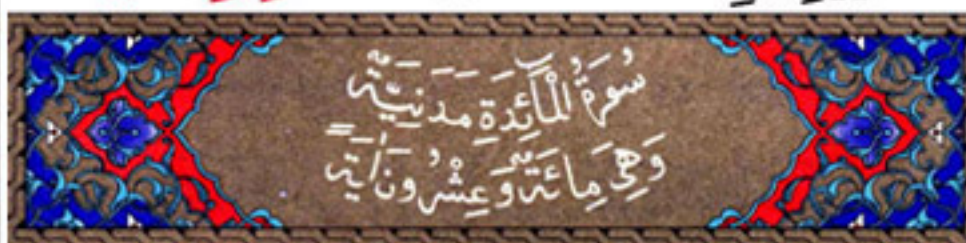 سُورَةُ الْمَآئِدَةِ مَدَنِيَّةٌ
وَهِىَ مِائَةٌ وَعِشْرُونَ اٰيَةً